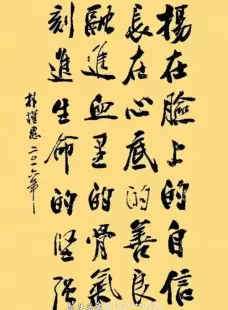 揚在臉上的自信
長在心底的善良
融進血里的骨氣
刻進生命的堅強
朴槿惠二〇一六年